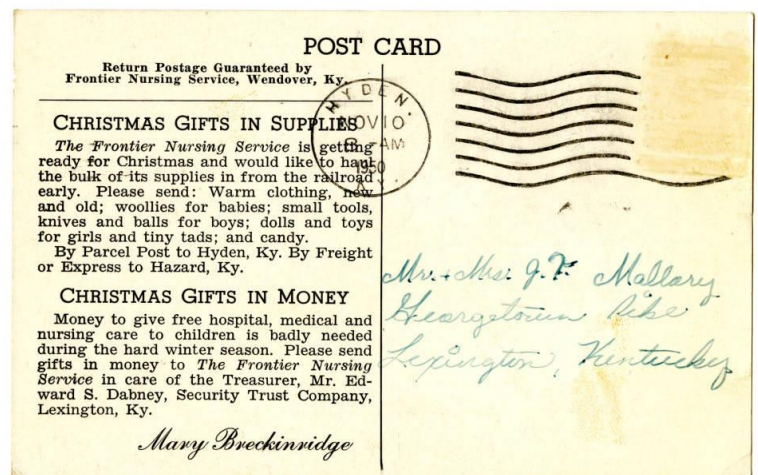 POST CARD
Return Postage Guaranteed by
Frontier Nursing Service, Wendover, Ky.
CHRISTMAS GIFTS IN SUPPLIES
The Frontier Nursing Service is getting
ready for Christmas and would like to haul
the bulk of its supplies in from the railroad
early. Please send: Warm clothing, new
and old; woollies for babies; small tools,
knives and balls for boys; dolls and toys
for girls and tiny tads; and candy.
By Parcel Post to Hyden, Ky. By Freight
or Express to Hazard, Ky.
CHRISTMAS GIFTS IN MONEY
Money to give free hospital, medical and
nursing care to children is badly needed
during the hard winter season. Please send
gifts in money to The Frontier Nursing
Service in care of the Treasurer, Mr. Ed-
ward S. Dabney, Security Trust Company,
Lexington, Ky.
Mary Breckinridge
HYDEN.
NOV 10
8 - AM
1950
KY.
Mr. + Mrs. J. F. Mallory
Georgetown Pike
Lexington, Kentucky